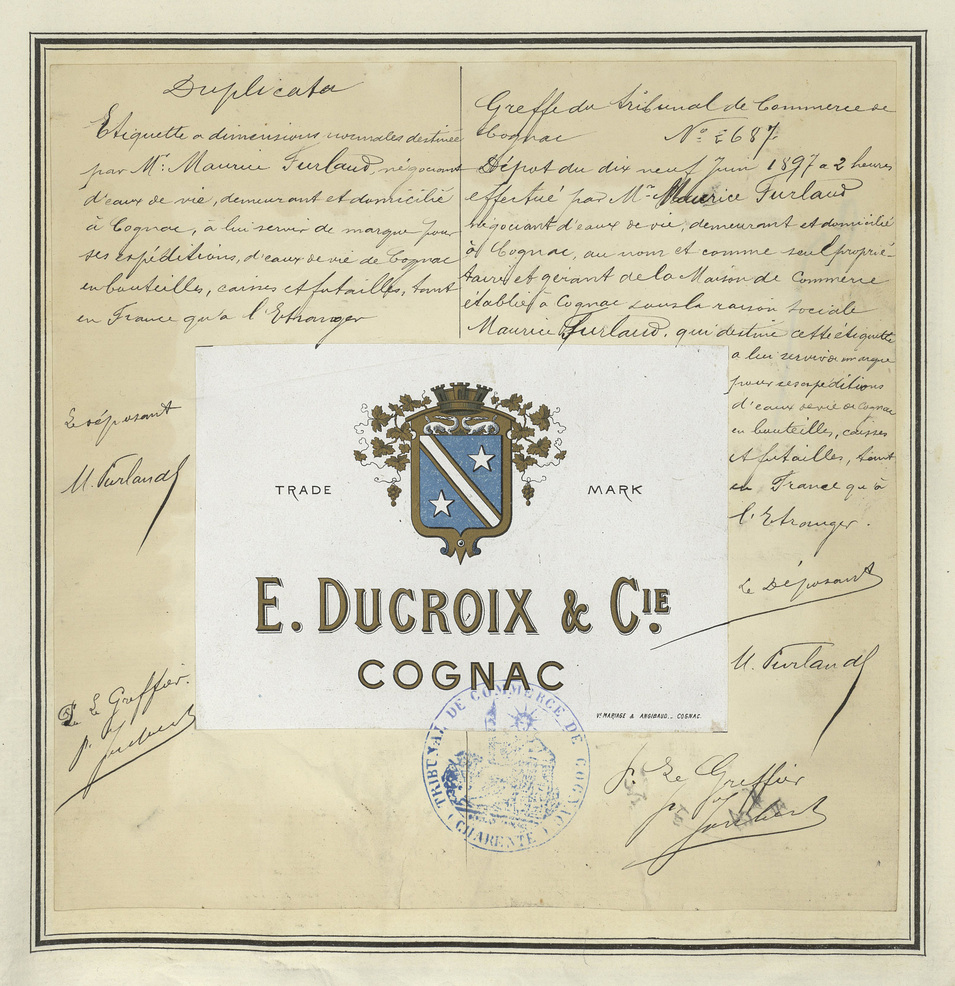 Duplicata
Etiquette a dimensions normales destinée
par Mr. Maurice Furlaud, négociant
d'eaux de vie, demeurant et domicilié
à Cognac, à lui servir de marque pour
ses expéditions, d'eaux de vie de Cognac
en bouteilles, caisses et futailles, tant
en France qu'a l'Etranger
Le déposant
M. Furlaud
Le Greffier.
Greffe du tribunal de Commerce de
Cognac No 2687.
Dépot du dix neuf Juin 1897 a 2 heures
effectué par Mr Maurice Furlaud
négociant d'eaux de vie, demeurant et domicilié
à Cognac, au nom et comme seul proprié-
taire et gérant de la Maison de Commerce
établie à Cognac sous la raison sociale
Maurice Furlaud. qui destine cette étiquette
a lui servir de marque
pour ses expéditions
d'eaux de vie de Cognac
en bouteilles, caisses
et futailles, tant
en France qu'à
l'Etranger.
Le Déposant
M. Furlaud
p. Le Greffier
TRADE MARK
E. DUCROIX & CIE.
COGNAC
Vve MARIAGE & ANGIBAUD._ COGNAC.
TRIBUNAL DE COMMERCE DE COGNAC
(CHARENTE)